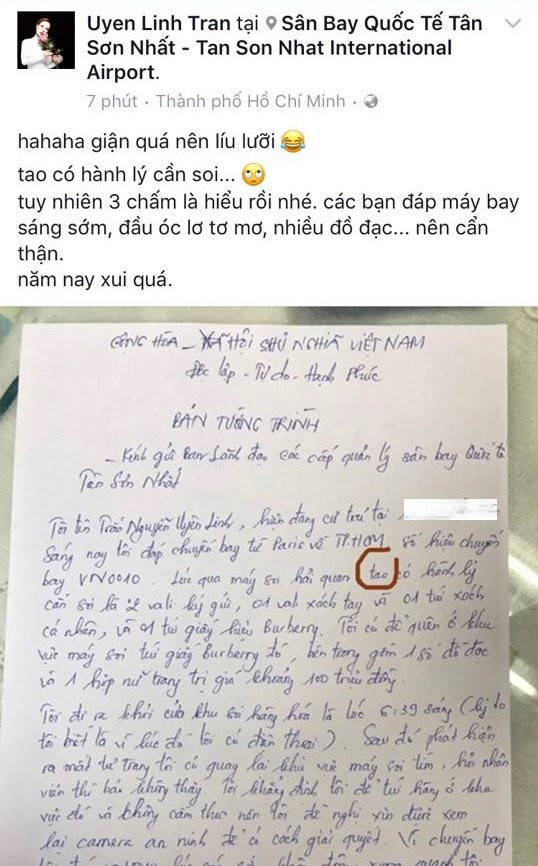 Uyen Linh Tran tại Sân Bay Quốc Tế Tân
Sơn Nhất - Tan Son Nhat International
Airport.
7 phút · Thành phố Hồ Chí Minh ·
hahaha giận quá nên líu lưỡi 😂
tao có hành lý cần soi... 🙄
tuy nhiên 3 chấm là hiểu rồi nhé. các bạn đáp máy bay
sáng sớm, đầu óc lơ tơ mơ, nhiều đồ đạc... nên cẩn
thận.
năm nay xui quá.
CỘNG HÒA - XÃ HỘI CHỦ NGHĨA VIỆT NAM
Độc lập - Tự do - Hạnh Phúc
BẢN TƯỜNG TRÌNH
- Kính gửi Ban Lãnh đạo các cấp quản lý sân bay Quốc tế
Tân Sơn Nhất
Tôi tên Trần Nguyễn Uyên Linh, hiện đang cư trú tại
Sáng nay tôi đáp chuyến bay từ Paris về TPHCM số hiệu chuyến
bay VN0010. Lúc qua máy soi hải quan tao có hành lý
cần soi là 2 vali ký gửi, 01 vali xách tay và 01 túi xách
cá nhân, và 01 túi giấy hiệu Burberry. Tôi có để quên ở khu
vực máy soi túi giấy Burberry đó, bên trong gồm 1 số đồ đạc
và 1 hộp nữ trang trị giá khoảng 100 triệu đồng.
Tôi đi ra khỏi cửa khu soi hàng hóa là lúc 6:39 sáng (lý do
tôi biết là vì lúc đó tôi có điện thoại). Sau đó phát hiện
ra mất tư trang tôi có quay lại khu vực máy soi tìm, hỏi nhân
viên thì báo không thấy. Tôi khẳng định tôi để túi hàng ở khu
vực đó và không cầm theo nên tôi đề nghị xin được xem
lại camera an ninh để có cách giải quyết. Vì chuyến bay